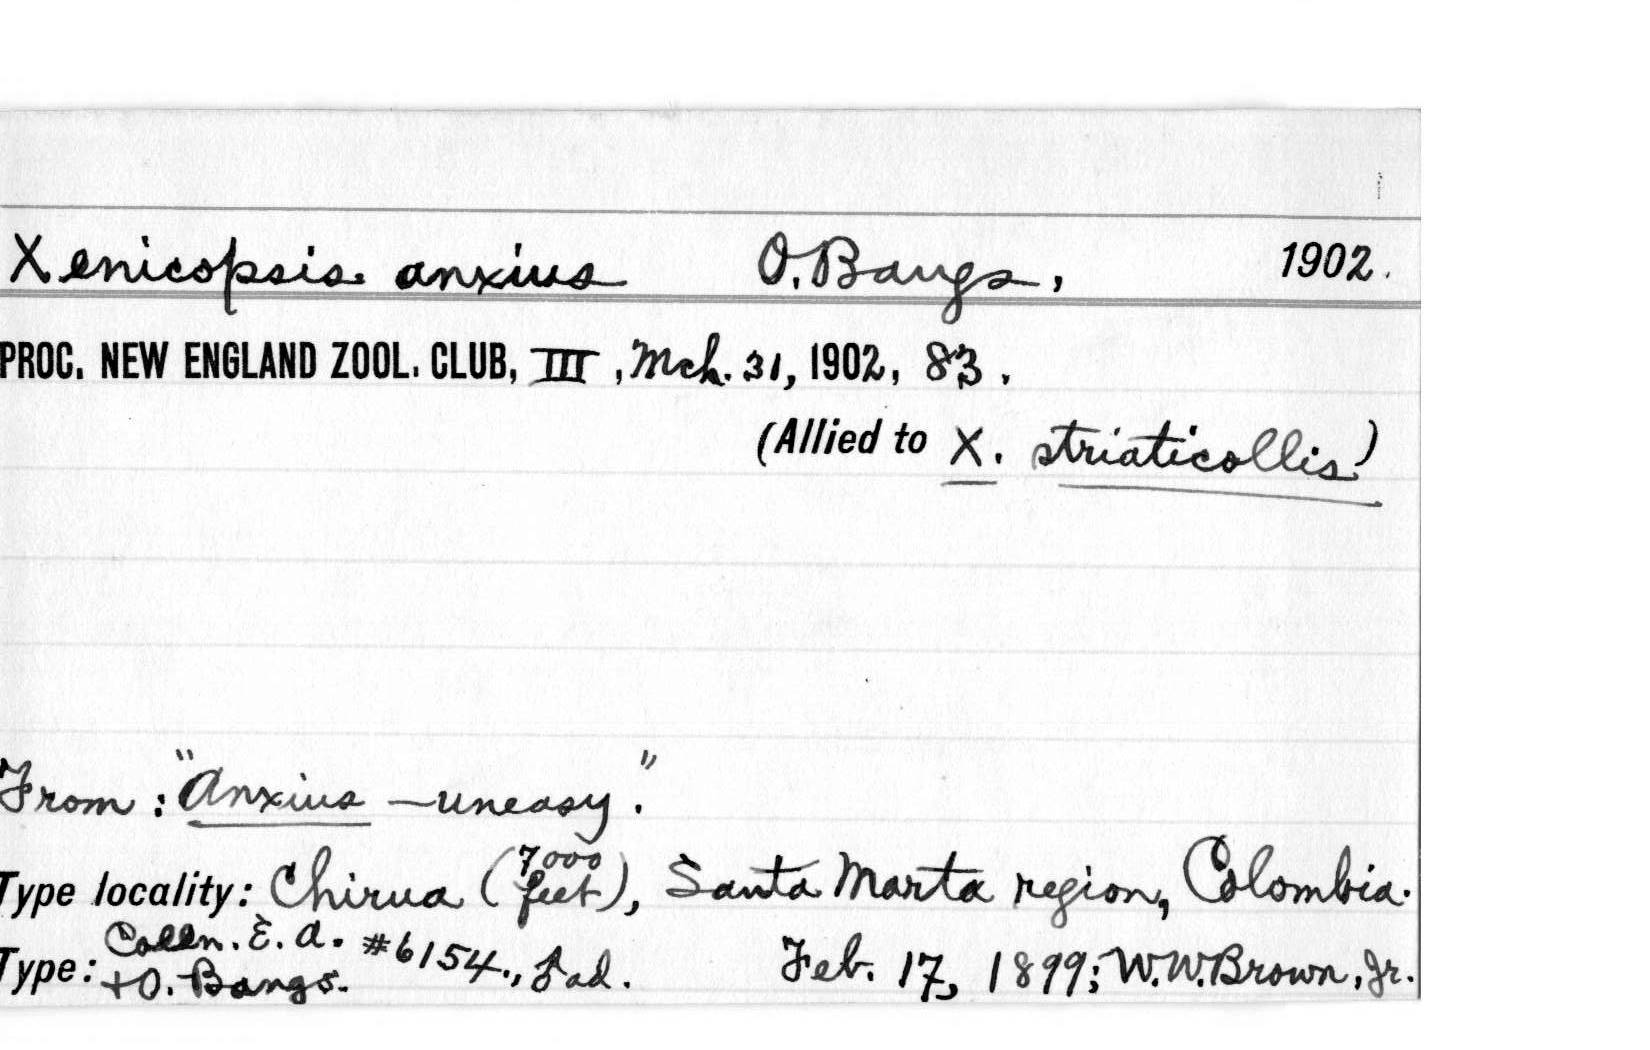 Xenicopsis anxius O. Bangs, 1902.
PROC. NEW ENGLAND ZOOL. CLUB, III, Mch. 31, 1902, 83.
(Allied to X. striaticollis)
From: "Anxius — uneasy."
Type locality: Chirua (7000 feet), Santa Marta region, Colombia.
Type: Colln. E. A. + O. Bangs. #6154., ad. Feb. 17, 1899; W. W. Brown, Jr.